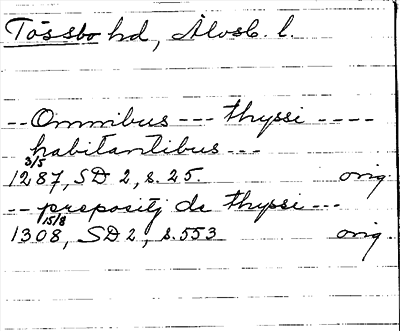 Tössbo hd, Älvsb. l.
-- Omnibus --- thyssi ----
habitantibus ---
3/5
1287, SD 2, s. 25. orig
-- prepositj de thyssi ---
15/8
1308, SD 2, s. 553 orig